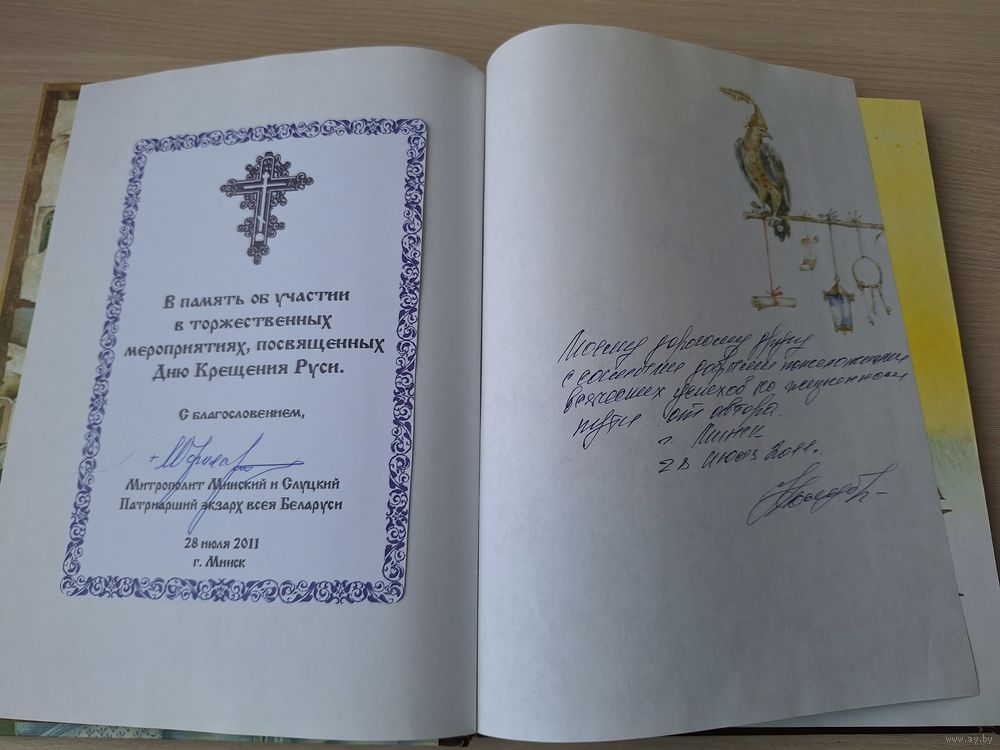 В память об участии
в торжественных
мероприятиях, посвященных
Дню Крещения Руси.
С благословением,
Митрополит Минский и Слуцкий
Патриарший экзарх всея Беларуси
28 июля 2011
г. Минск
Моему дорогому другу
с самыми добрыми пожеланиями
всяческих успехов по жизненному
пути от автора.
г. Минск
28 июля 2011г.
www.ay.by